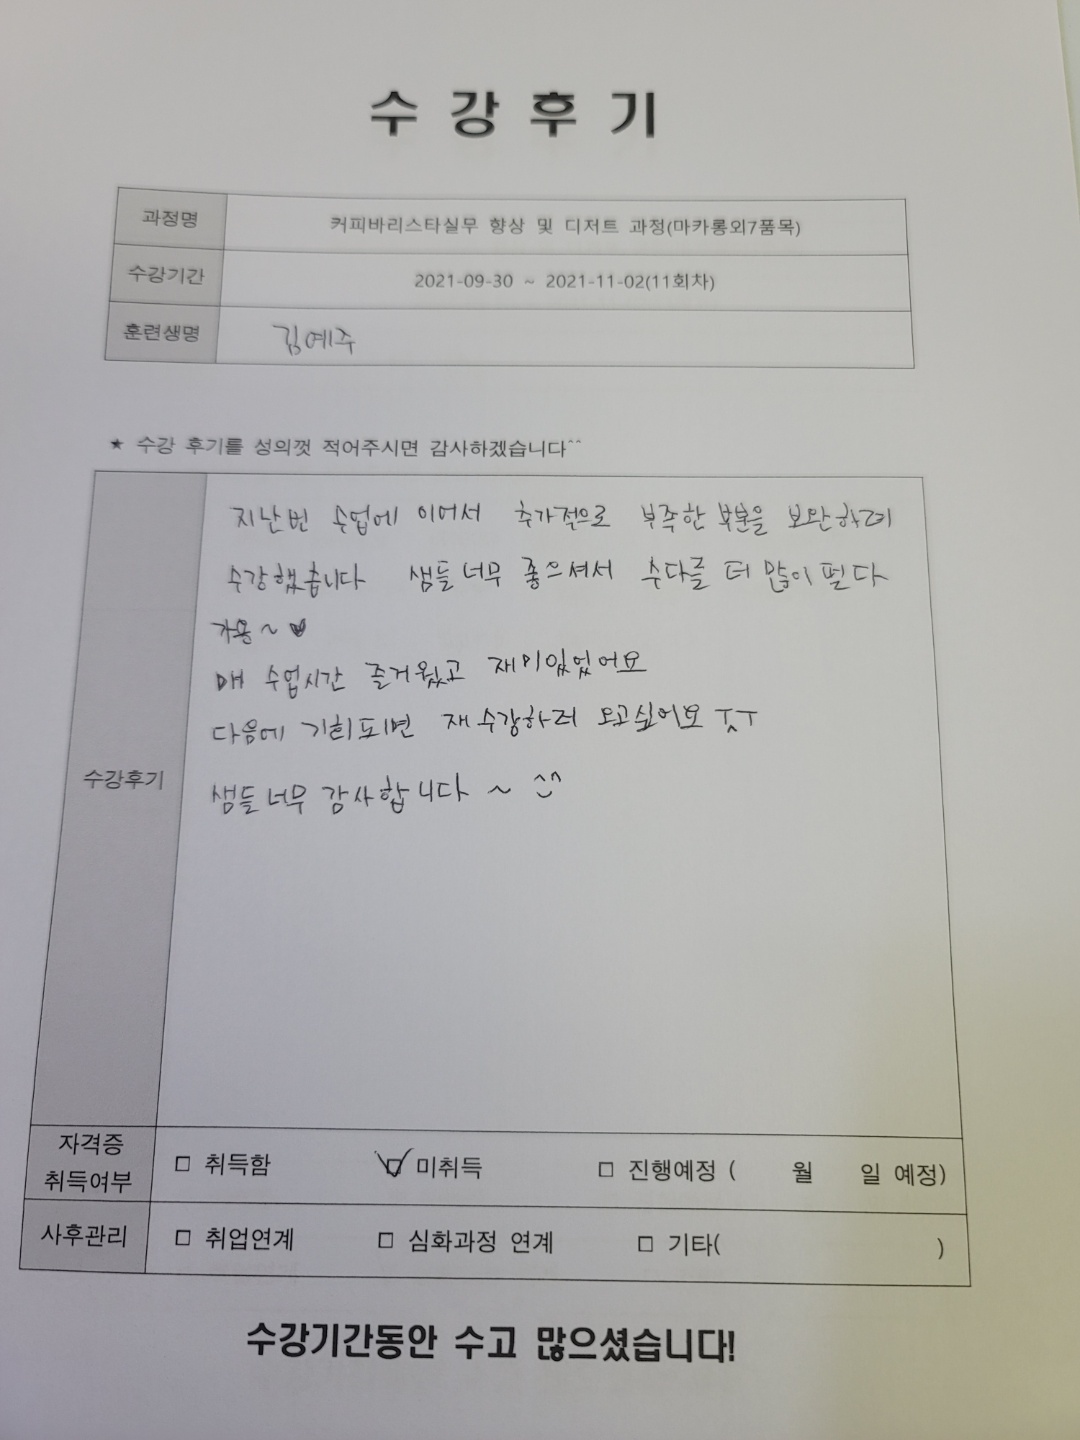 수 강 후 기
과정명 커피바리스타실무 향상 및 디저트 과정(마카롱외7품목)
수강기간 2021-09-30 ~ 2021-11-02(11회차)
훈련생명 김예주
★ 수강 후기를 성의껏 적어주시면 감사하겠습니다^^
지난번 수업에 이어서 추가적으로 부족한 부분을 보완하려
수강했습니다 샘들 너무 좋으셔서 수다를 더 많이 떨다
가용~♥
매 수업시간 즐거웠고 재미있었어요
다음에 기회되면 재수강하러 오고싶어요 ㅜㅜ
수강후기
샘들 너무 감사합니다 ~ ^^
자격증
취득여부 □ 취득함 ☑ 미취득 □ 진행예정 ( 월 일 예정)
사후관리 □ 취업연계 □ 심화과정 연계 □ 기타( )
수강기간동안 수고 많으셨습니다!